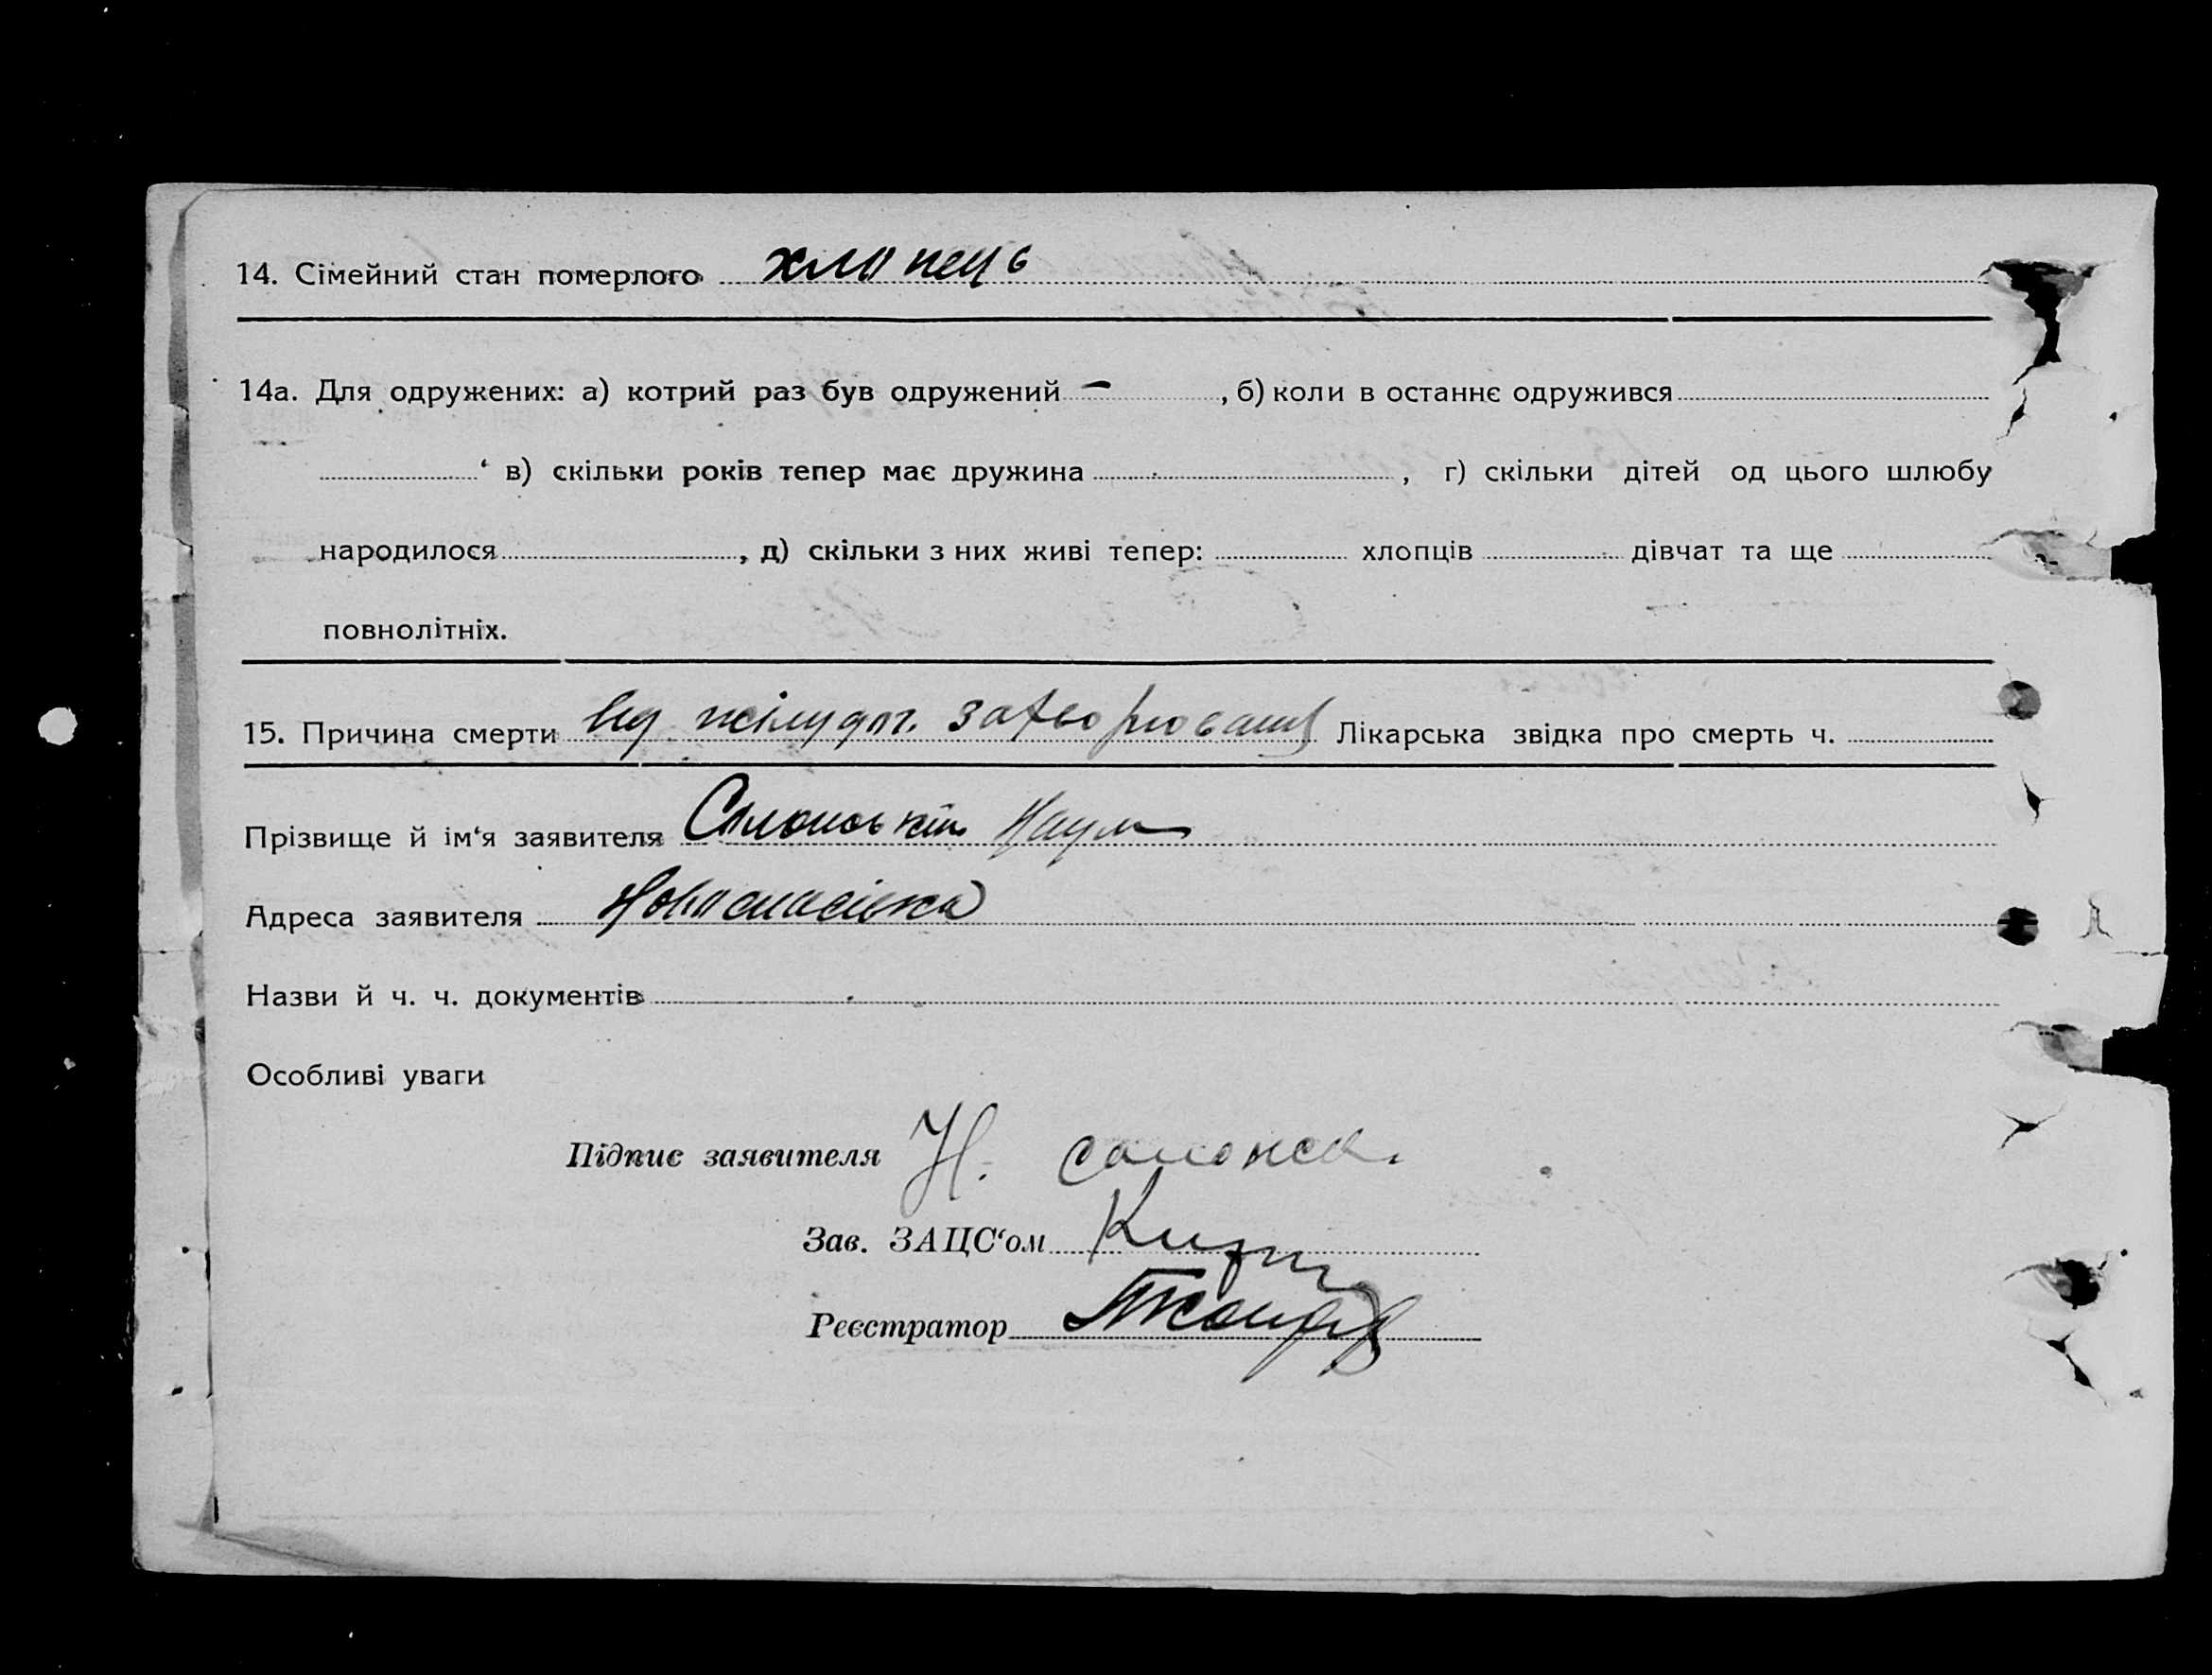 14. Сімейний стан померлого хлопець
14а. Для одружених: а) котрий раз був одружений — , б) коли в останнє одружився
в) скільки років тепер має дружина , г) скільки дітей од цього шлюбу
народилося , д) скільки з них живі тепер: хлопців дівчат та ще
повнолітніх.
15. Причина смерти від затворювання Лікарська звідка про смерть ч.
Прізвище й ім‘я заявителя Наум
Адреса заявителя Новоспасівка
Назви й ч. ч. документів
Особливі уваги
Підпис заявителя Н.
Зав. ЗАЦС‘ом
Реєстратор